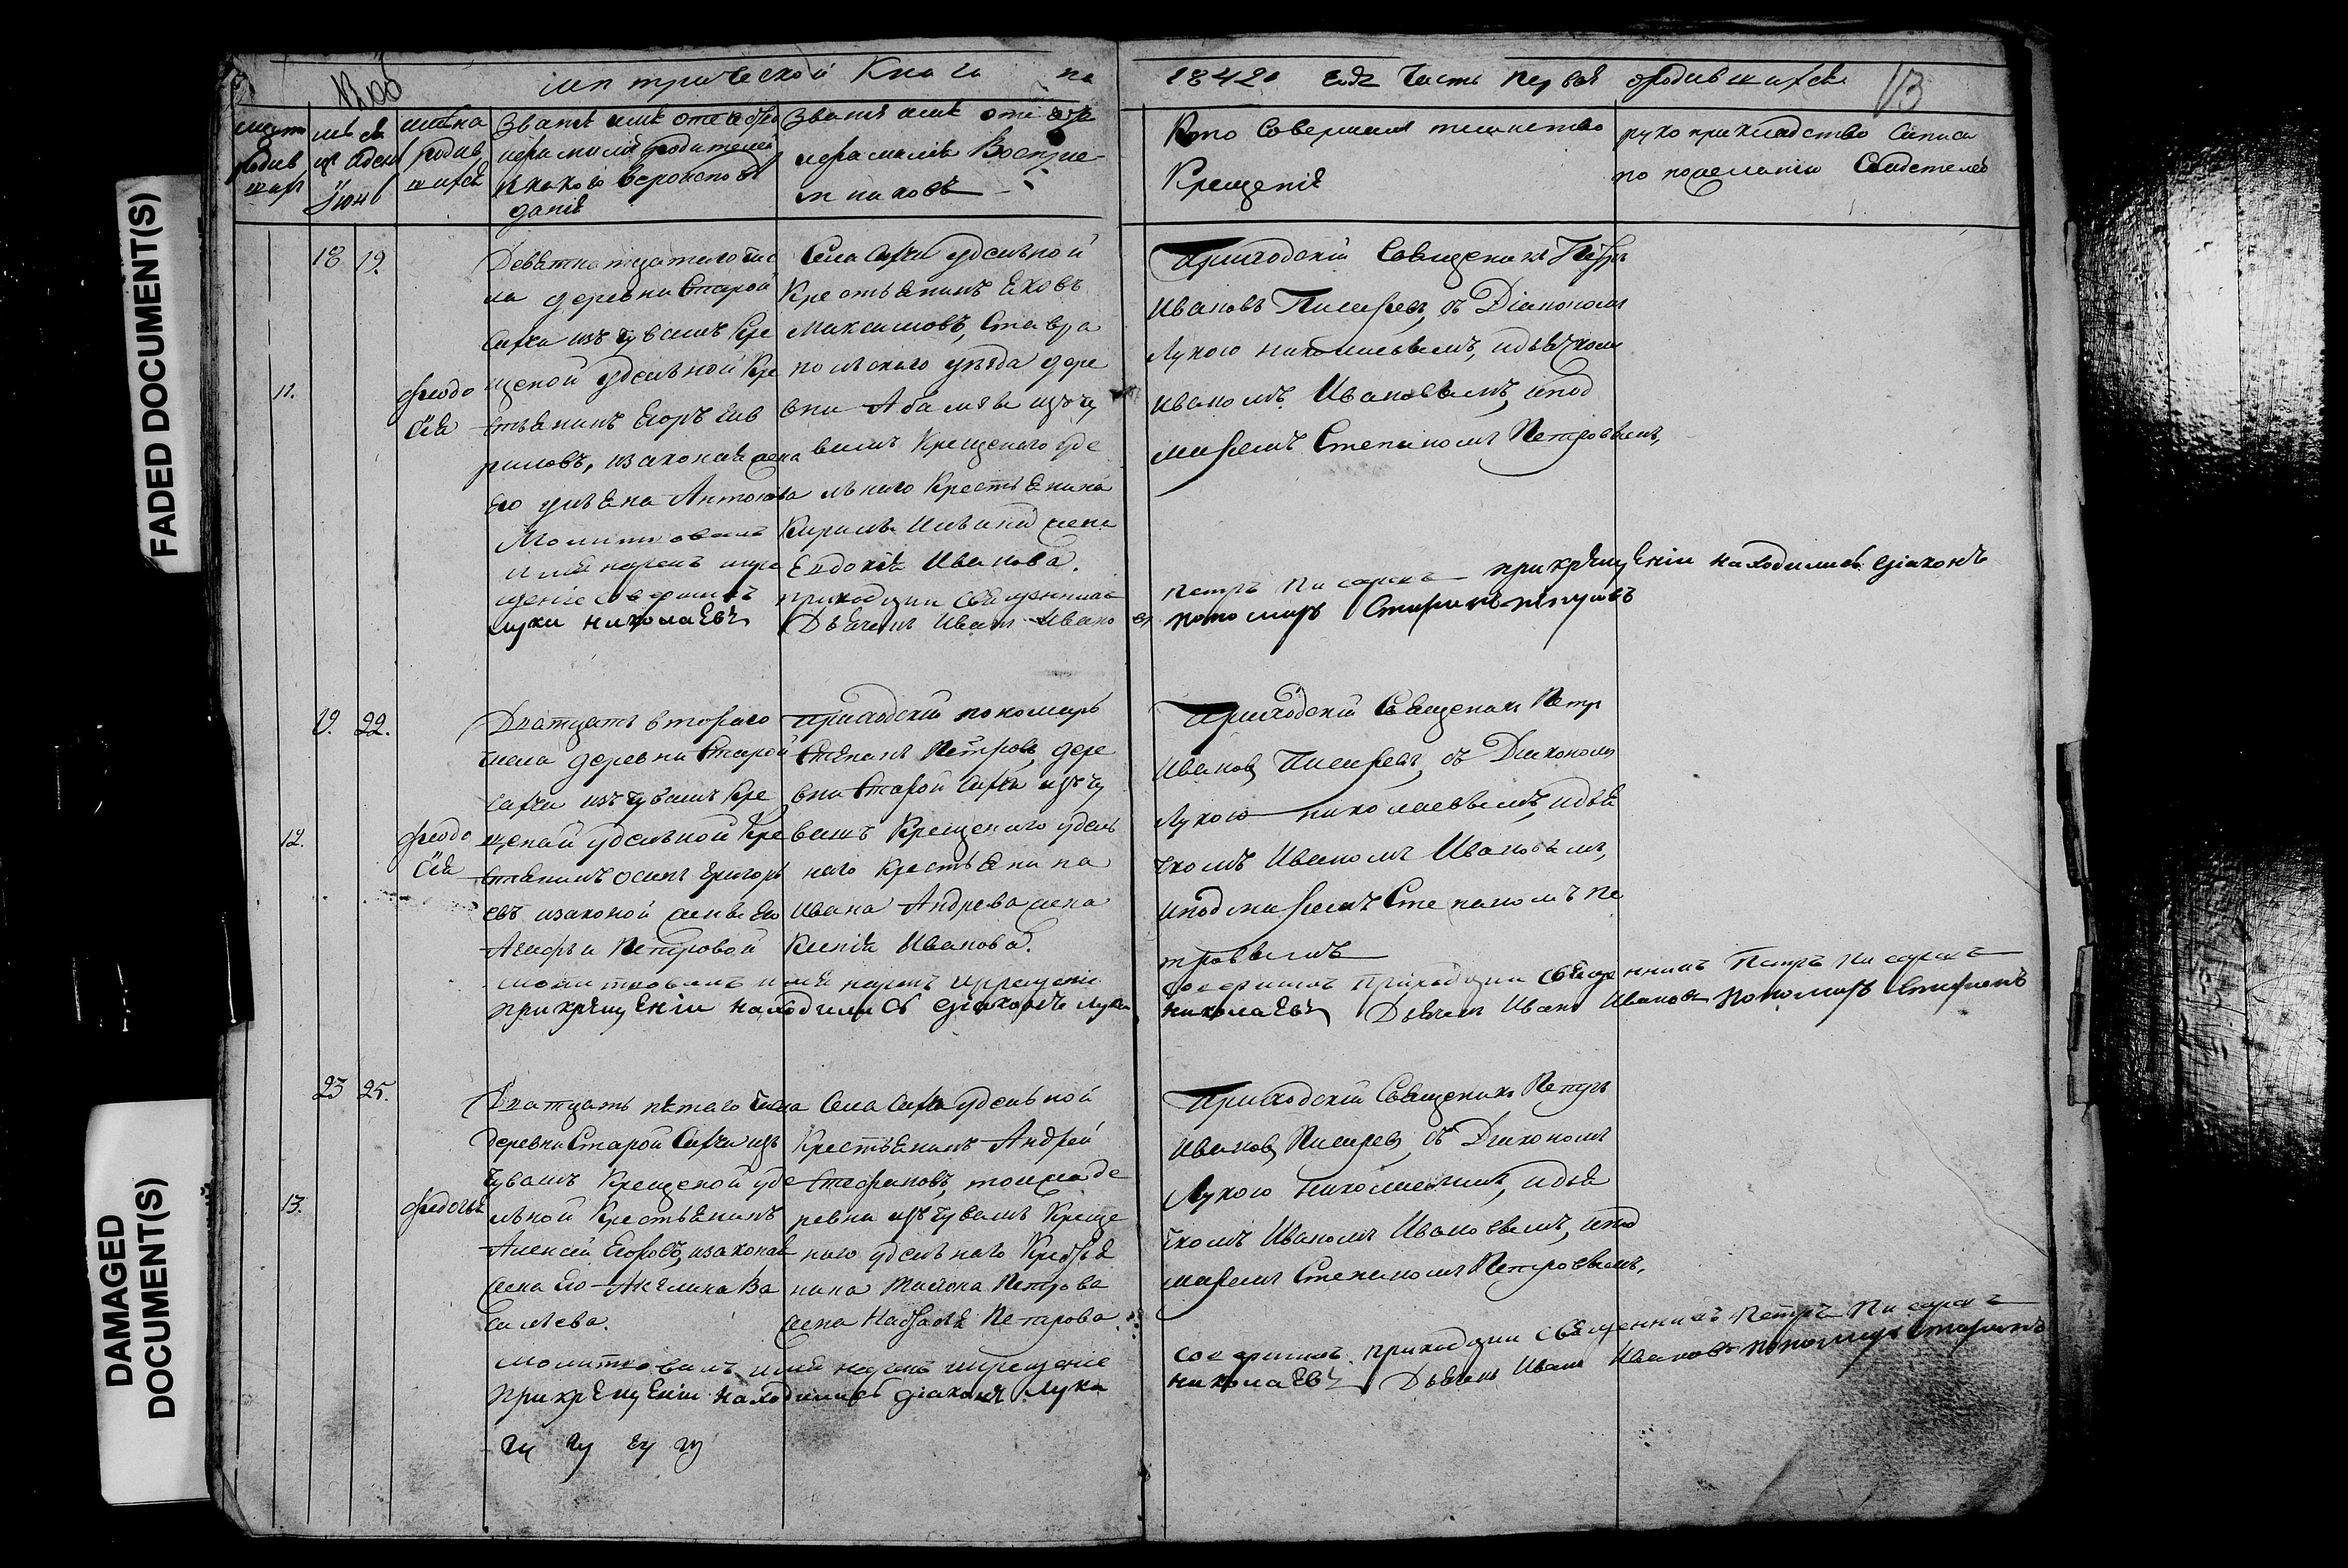 FADED DOCUMENT(S)
DAMAGED
DOCUMENT(S)
метрической Книги на
1842й годъ Часть первая о родившихся
13
Июнь
Званiе имя отечество
и фамилiя родителей
и какого вероиспове
данiя
Званiе имя отечество
и фамилiя Воспрiе
мниковъ
Кто Совершалъ таинство
Крещенiя
рукоприкладство Записи
по пожеланiю Свидетелей
11.
18 19.
феодо
сiя
Девятнатцатаго чис
ла деревни Старой
изъ чувашъ Кре
щеной удельной Кре
стьянинъ Егоръ
законная жена
Его Ульяна Антонова
Молитвовалъ
имя нарекъ и кре
щенiе совершилъ
Луки николаевъ
Села удельной
Крестьянинъ Яковъ
Максимовъ, Ставро
польскаго уезда дере
вни изъ чу
вашъ Крещенаго уде
льнаго Крестьянина
жена
Евдокiя Иванова.
приходции священникъ
Дьячекъ Иванъ Ивано
въ
Приходскiй Священикъ Петръ
Ивановъ Писаревъ, съ Дiакономъ
Лукою николаевымъ, и дьячкомъ
Иваномъ Ивановымъ, и поно
маремъ Степаномъ Петровымъ,
Петръ Писаревъ при крещенiи находились дiаконъ
пономарь Стефанъ петровъ
12.
19. 22.
феодо
сiя
Дватцать втораго
числа деревни Старой
изъ чувашъ Кре
щеной удельной Кре
стьянинъ осипъ григорь
евъ и законой жены Его
Петровой
молитвовалъ имя нарекъ и крещенiе
при крещенiи находились дiаконъ Лука
Приходскiй пономарь
Степанъ Петровъ, дере
вни Старой изъ чу
вашъ Крещенаго удель
наго крестьянина
Ивана Андрева жена
Ксенiя Иванова.
Приходскiй Священикъ Петръ
Ивановъ Писаревъ, съ Диакономъ
Лукою николаевымъ, и дья
чкомъ Иваномъ Ивановымъ,
и пономаремъ Степаномъ Пе
тровымъ
совершилъ приходции священникъ Петръ Писаревъ
николаевъ Дьячекъ Иванъ Ивановъ пономарь Стефанъ
13.
23 25.
федосья
Дватцать пятаго числа
деревни Старой изъ
чувашъ Крещеной уде
льной Крестьянинъ
Алексей Егоровъ, и законая
жена Его Акулина Ва
сильева.
Молитвовалъ имя нарекъ и крещенiе
при крещенiи находились дiаконъ Лука
Села удельной
Крестьянинъ Андрей
Стефановъ, тои жа де
ревни изъ чувашъ Креще
наго удельнаго Крестья
нина Петрова
жена Наталья Петрова.
Приходскiй Священикъ Петръ
Ивановъ Писаревъ, съ Диакономъ
Лукою николаевымъ, и дья
чкомъ Иваномъ Ивановымъ, и поно
маремъ Степаномъ Петровымъ.
совершилъ приходции священникъ Петръ Писаревъ
николаевъ Дьячекъ Иванъ Ивановъ пономарь Стефанъ